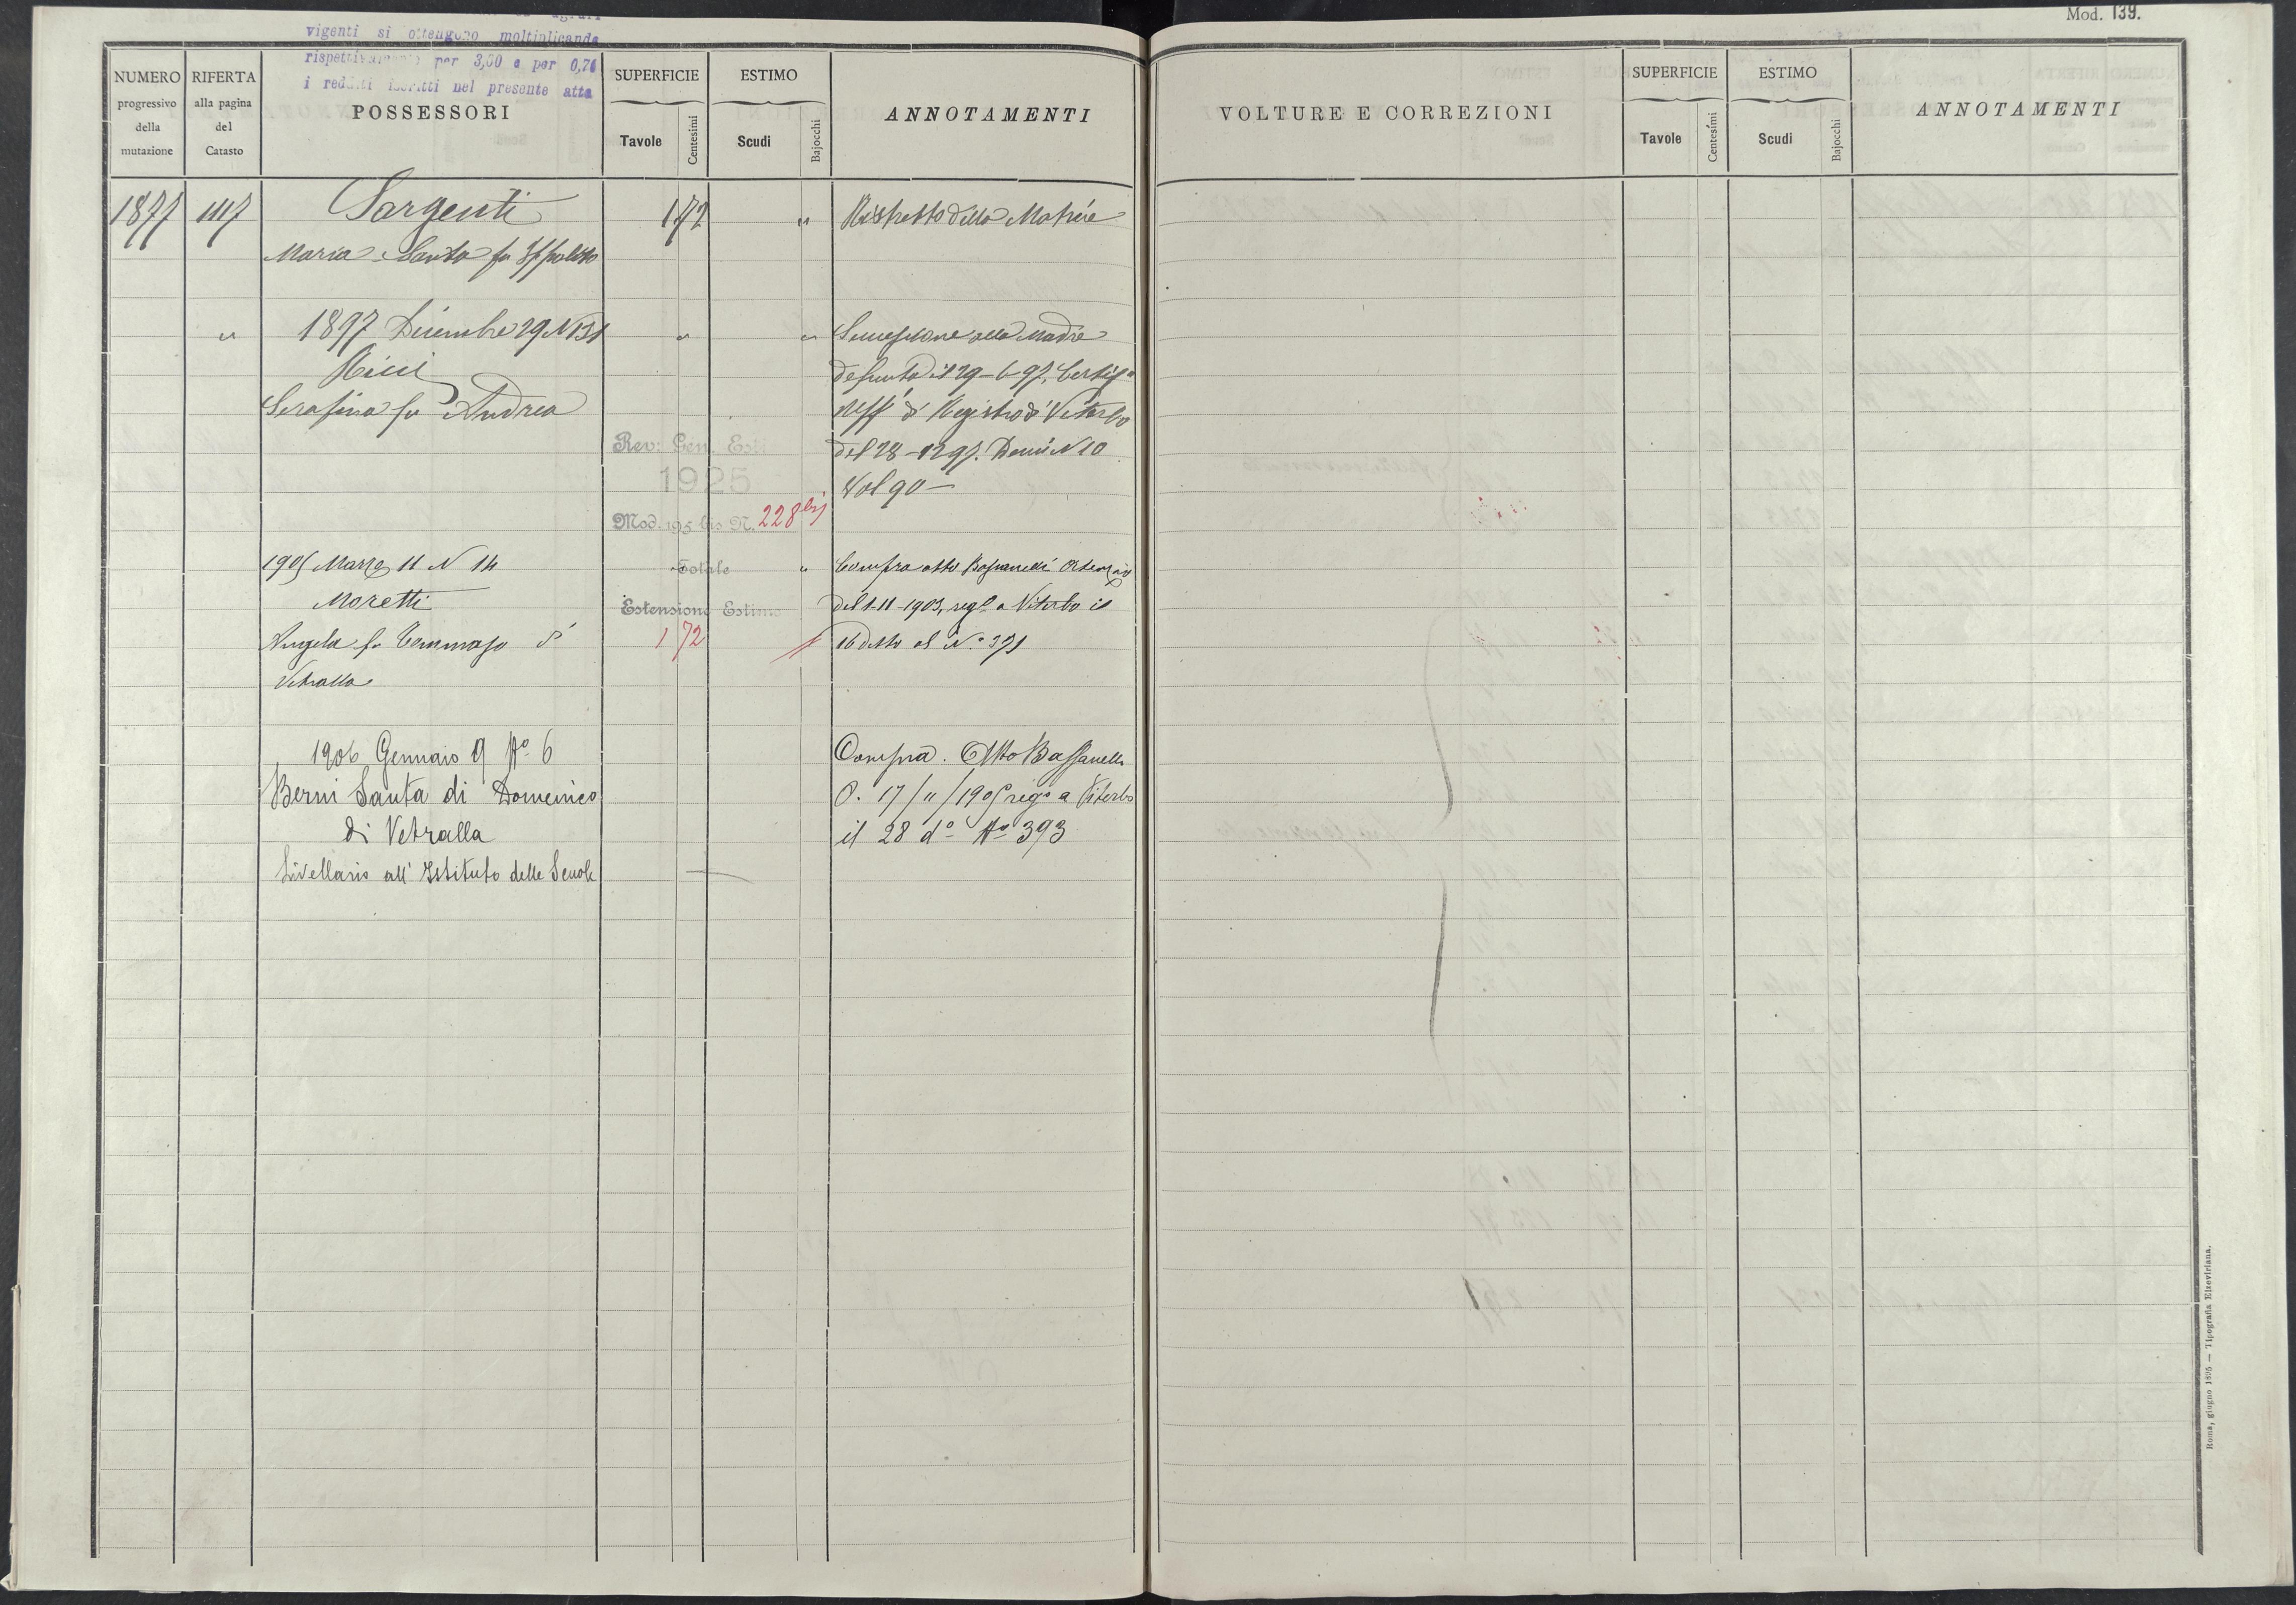 Mod. 139.
vigenti si ottengono moltiplicando
rispettivamente per 3,00 e per 0,70
i redditi iscritti nel presente atto
NUMERO
progressivo
della
mutazione
RIFERTA
alla pagina
del
Catasto
POSSESSORI
SUPERFICIE
Tavole
Centesimi
ESTIMO
Scudi
Bajocchi
ANNOTAMENTI
1877 1117 Sargenti 1 72 " Ristretto della Matrice
Maria Santa fu Ippolito
" 1897 Dicembre 29 N 131 " " Successione alla Madre
Ricci defunta il 29-6-97, Certif°
Serafina fu Andrea Uff° di Registro di Viterbo
Rev: Gen. Esti
del 28-12 97. Den: N 10
1925
Vol 90 —
Mod. 195 bis N. 228 bis
1905 Marzo 11 N 14 Totale " Compra atto Bassanelli
Moretti Estensione Estimo del 1-11-1903, reg° a Viterbo il
Angela fu Tommaso di 1 72 16 detto al N.° 371
Vetralla
1906 Gennaio 9 N° 6 Compra. Atto Bassanelli
Berni Santa di Domenico O. 17/11/1905 reg° a Viterbo
di Vetralla il 28 d° N° 393
Livellario all' Istituto delle Scuole
VOLTURE E CORREZIONI
SUPERFICIE
Tavole
Centesimi
ESTIMO
Scudi
Bajocchi
ANNOTAMENTI
Roma, giugno 1895 — Tipografia Elzeviriana.